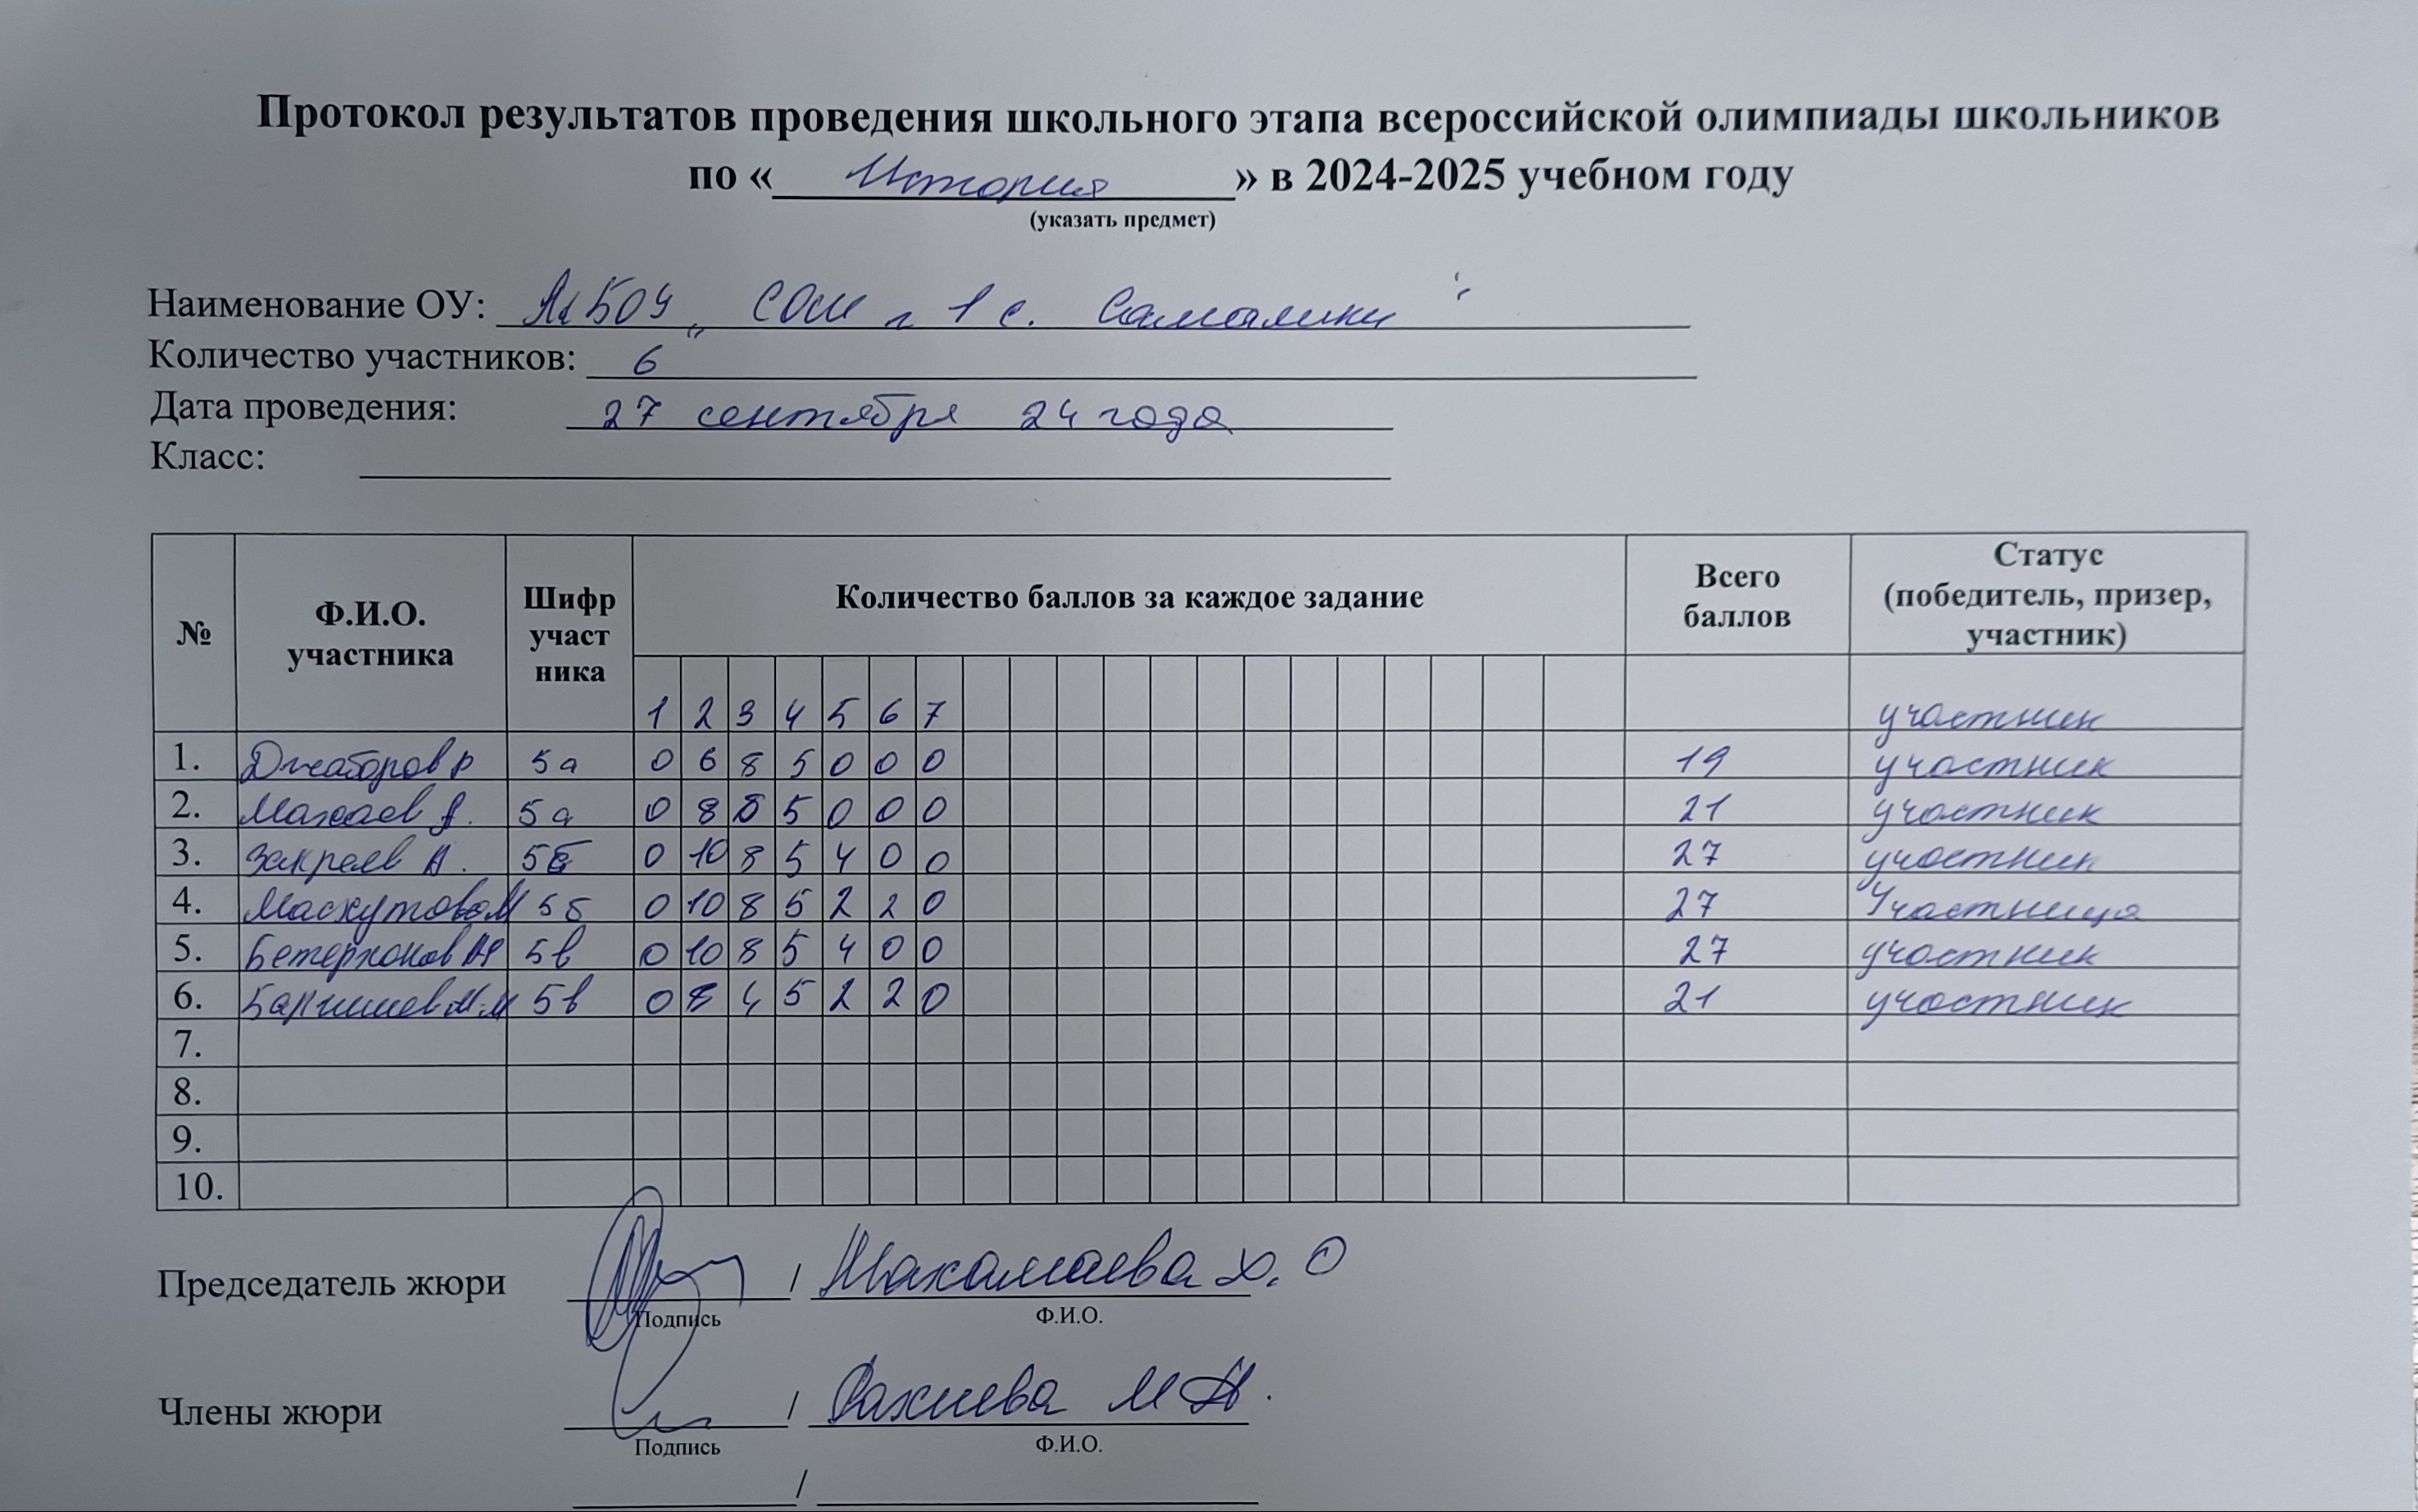 Протокол результатов проведения школьного этапа всероссийской олимпиады школьников
по « История » в 2024-2025 учебном году
(указать предмет)
Наименование ОУ: „ СОШ 1 с.
Количество участников: 6
Дата проведения: 27 сентября 24 года
Класс:
№ Ф.И.О. участника Шифр участ ника Количество баллов за каждое задание Всего баллов Статус (победитель, призер, участник)
1 2 3 4 5 6 7 участник
1. Джабаров р 5а 0 6 8 5 0 0 0 19 участник
2. 5а 0 8 8 5 0 0 0 21 участник
3. Закраев А. 5б 0 10 8 5 4 0 0 27 участник
4. 5б 0 10 8 5 2 2 0 27 Участница
5. 5в 0 10 8 5 4 0 0 27 участник
6. 5в 0 8 4 5 2 2 0 21 участник
7.
8.
9.
10.
Председатель жюри / Махамаева Х. О
Подпись Ф.И.О.
Члены жюри /
Подпись Ф.И.О.
/